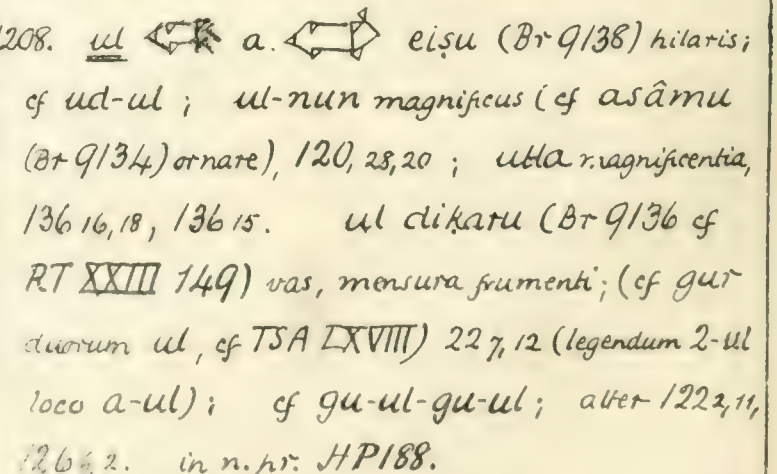 1208. ul a. eiṣu (Br 9138) hilaris;
cf ud-ul ; ul-nun magnificus (cf asâmu
(Br 9134) ornare), 120, 28, 20 ; ulla magnificentia,
136 16, 18, 136 15. ul diḳaru (Br 9136 cf
RT XXIII 149) vas, mensura frumenti; (cf gur
duorum ul, cf TSA LXVIII) 22 7, 12 (legendum 2-ul
loco a-ul); cf gu-ul-gu-ul; alter 122 2, 11,
2. in n. pr. HP188.